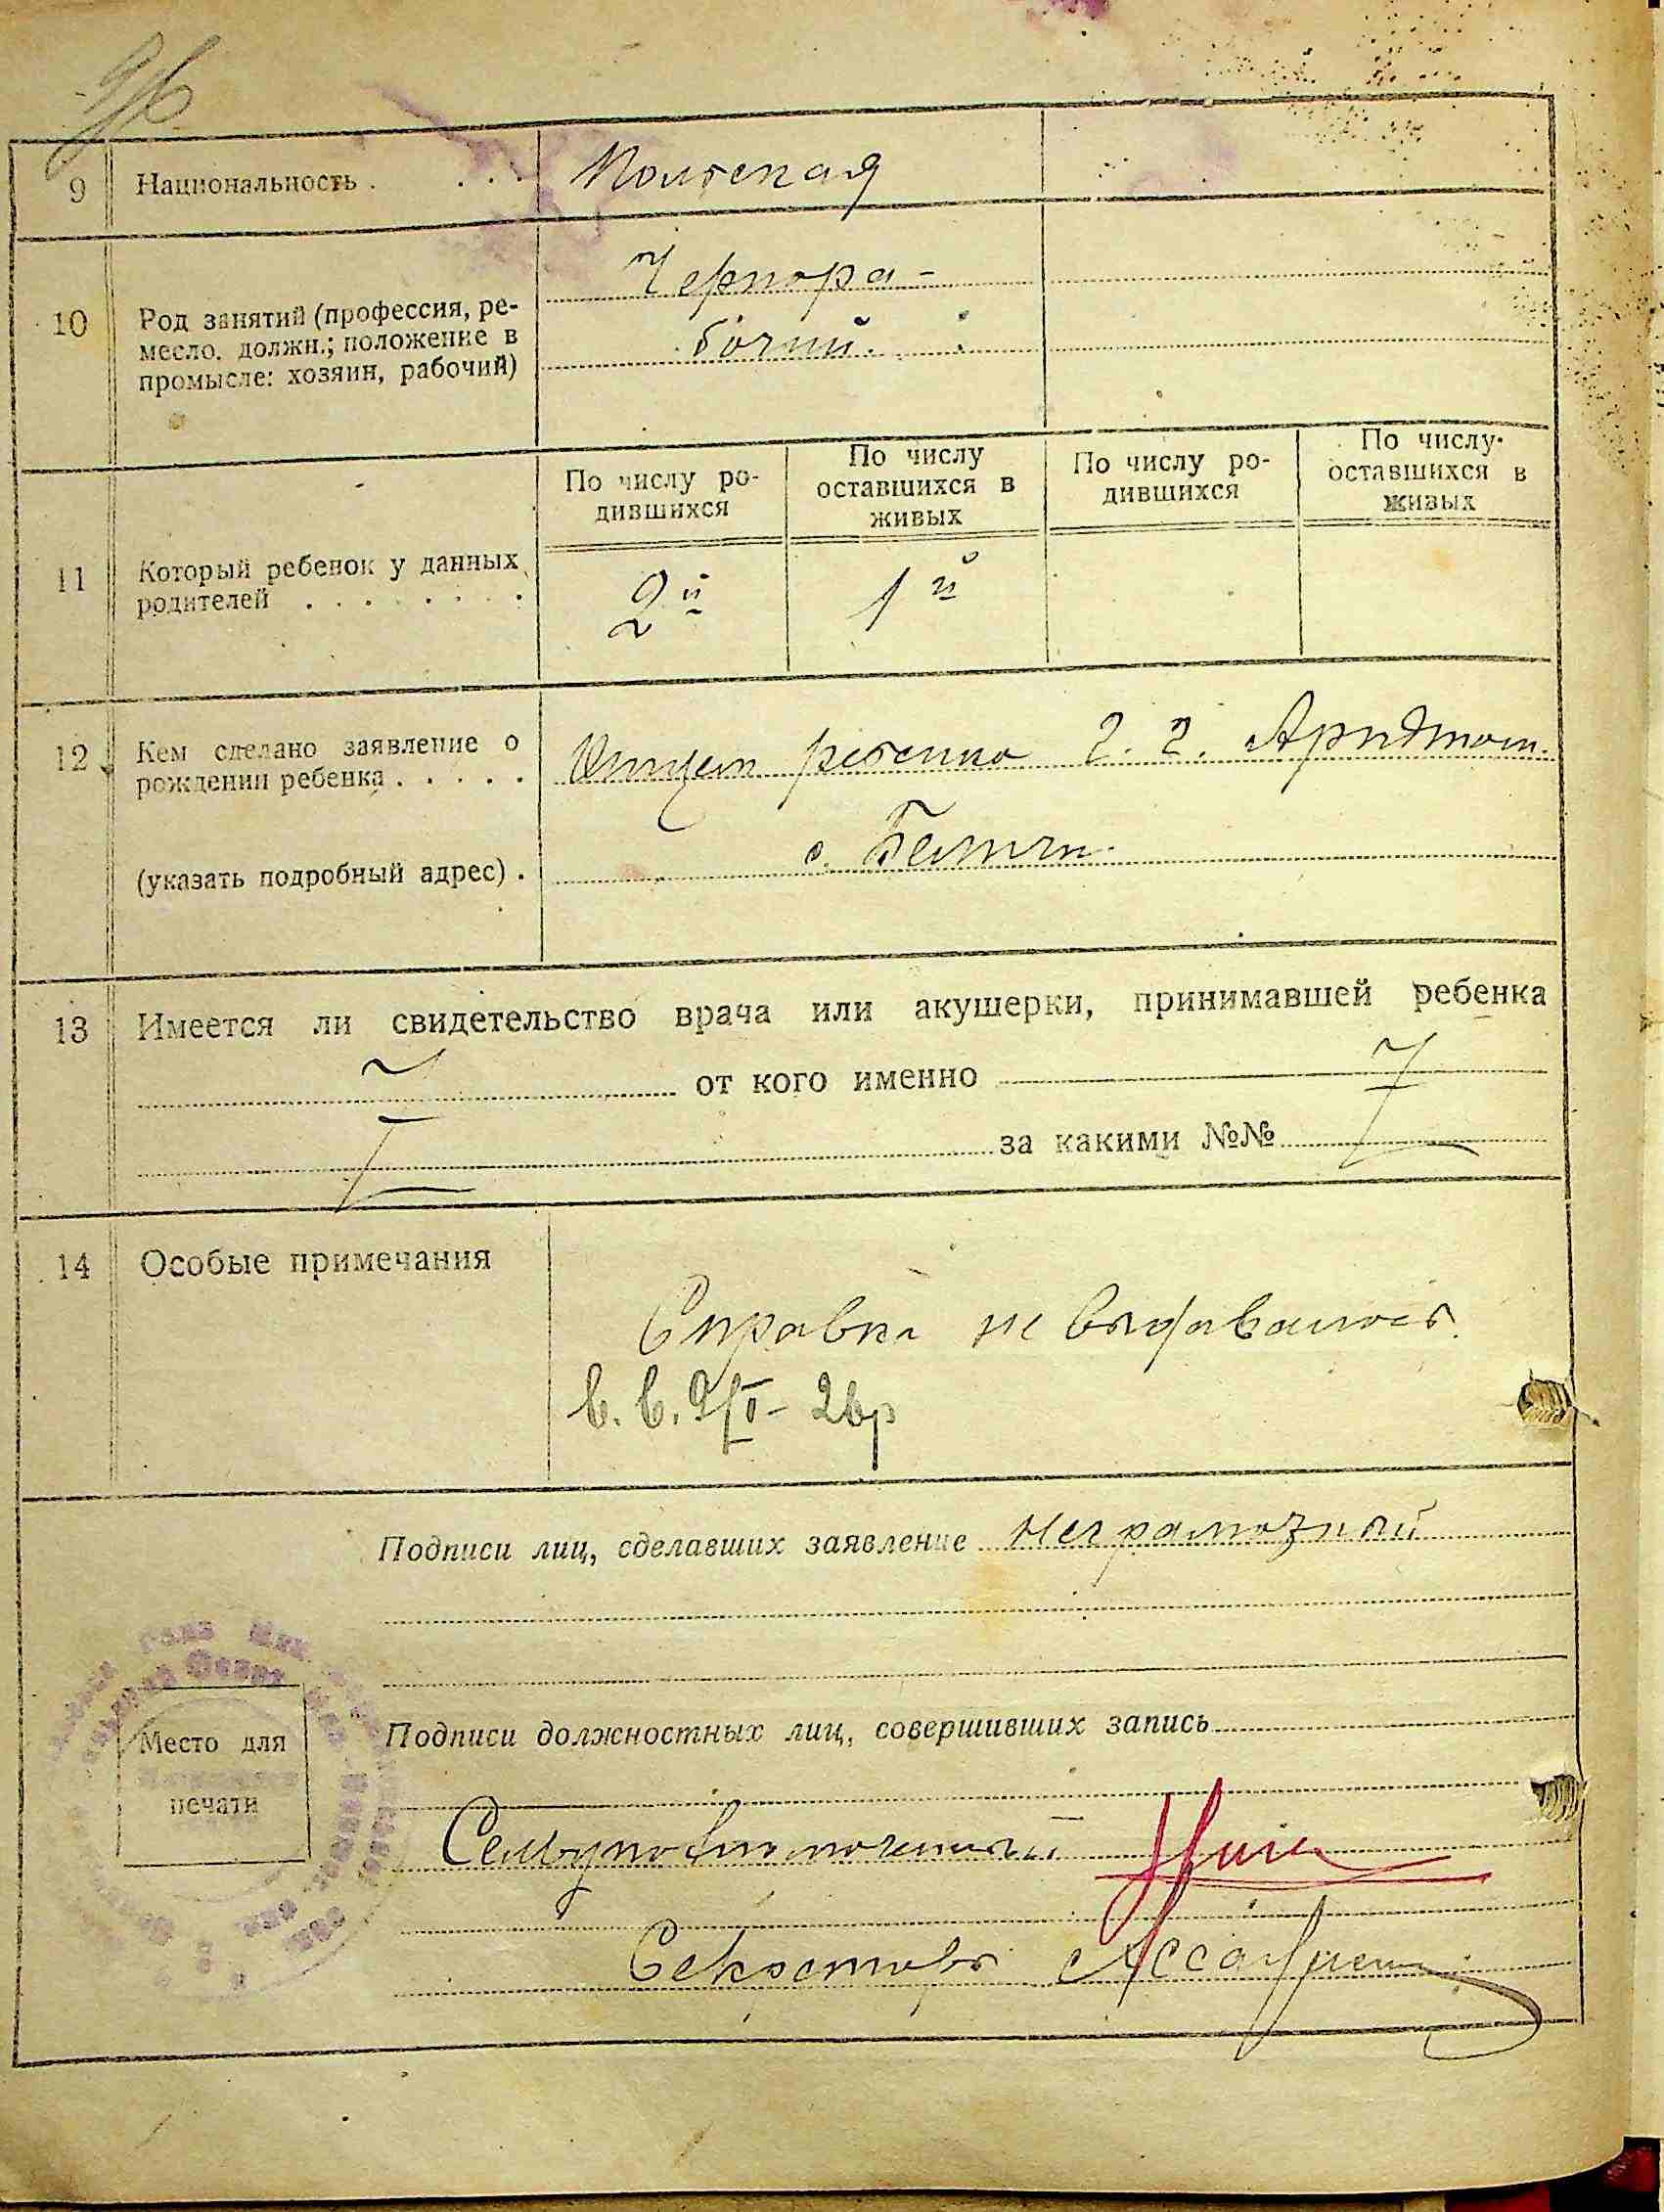 9 Национальность . . . . Польская
10 Род занятий (профессия, ре-
месло, должн.; положение в
промысле: хозяин, рабочий)
Чернора-
бочий.
11 Который ребенок у данных
родителей . . . . . . . .
По числу ро-
дившихся
По числу
оставшихся в
живых
По числу ро-
дившихся
По числу
оставшихся в
живых
2й 1й
12 Кем сделано заявление о
рождении ребенка . . . . .
Отцем ребенка г. г.
(указать подробный адрес) .
13 Имеется ли свидетельство врача или акушерки, принимавшей ребенка
от кого именно
за какими №№
14 Особые примечания
Справка не выдавалась.
Подписи лиц, сделавших заявление неграмотный
Подписи должностных лиц, совершивших запись
Место для
печати
Секретарь